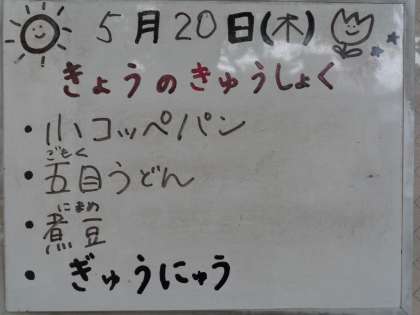 5月20日(木)
きょうのきゅうしょく
・小コッペパン
ごもく
・五目うどん
にまめ
・煮豆
・ぎゅうにゅう